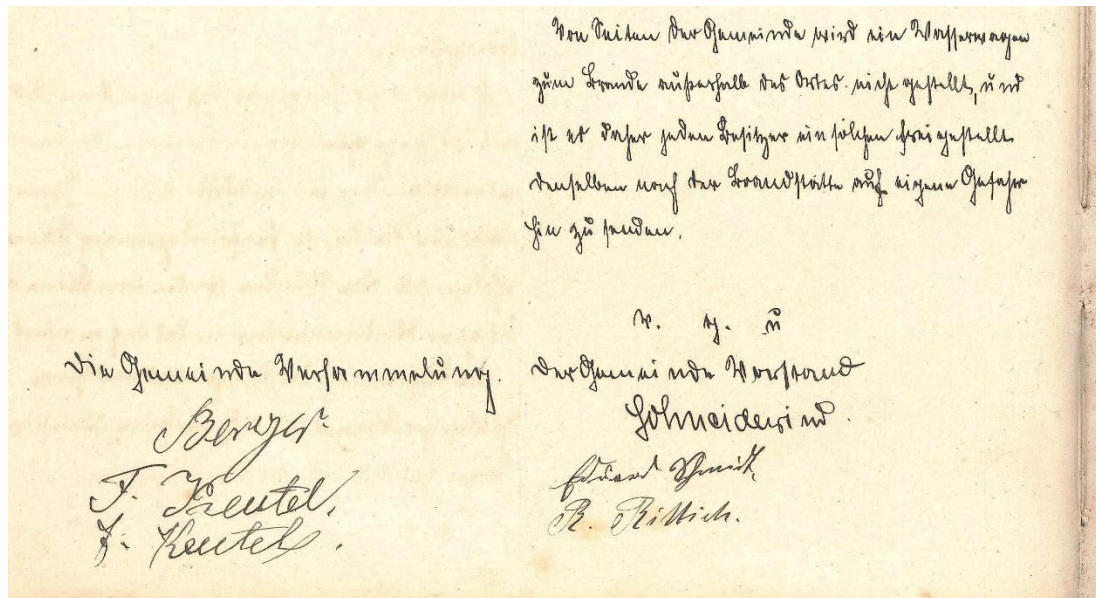 Von Seiten der Gemeinde wird ein Wasserwagen
zum Brande außerhalb des Ortes nicht gestellt, und
ist es daher jeden Besitzer ein solchen freigestellt
denselben nach der Brandstätte auf eigene Gefahr
hin zu senden.
v. g. u
Die Gemeinde Versammelung.
Der Gemeinde Vorstand
Berger.
Schneidewind.
F. Keutel.
Eduard Schmidt,
F. Keutel.
R. Rittich.